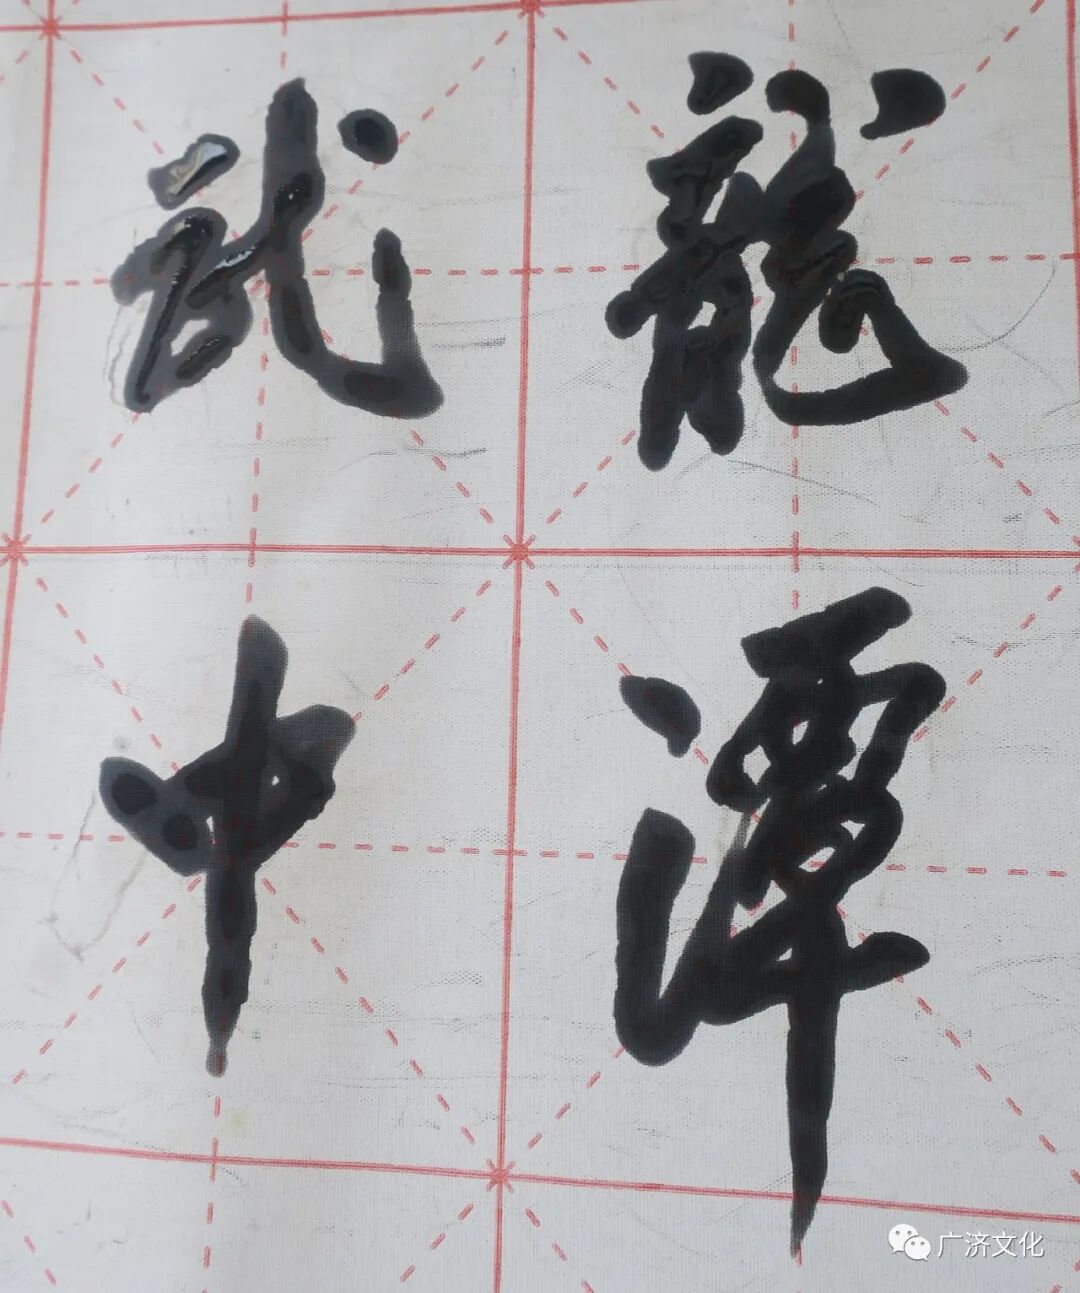 龍潭
武中
广济文化